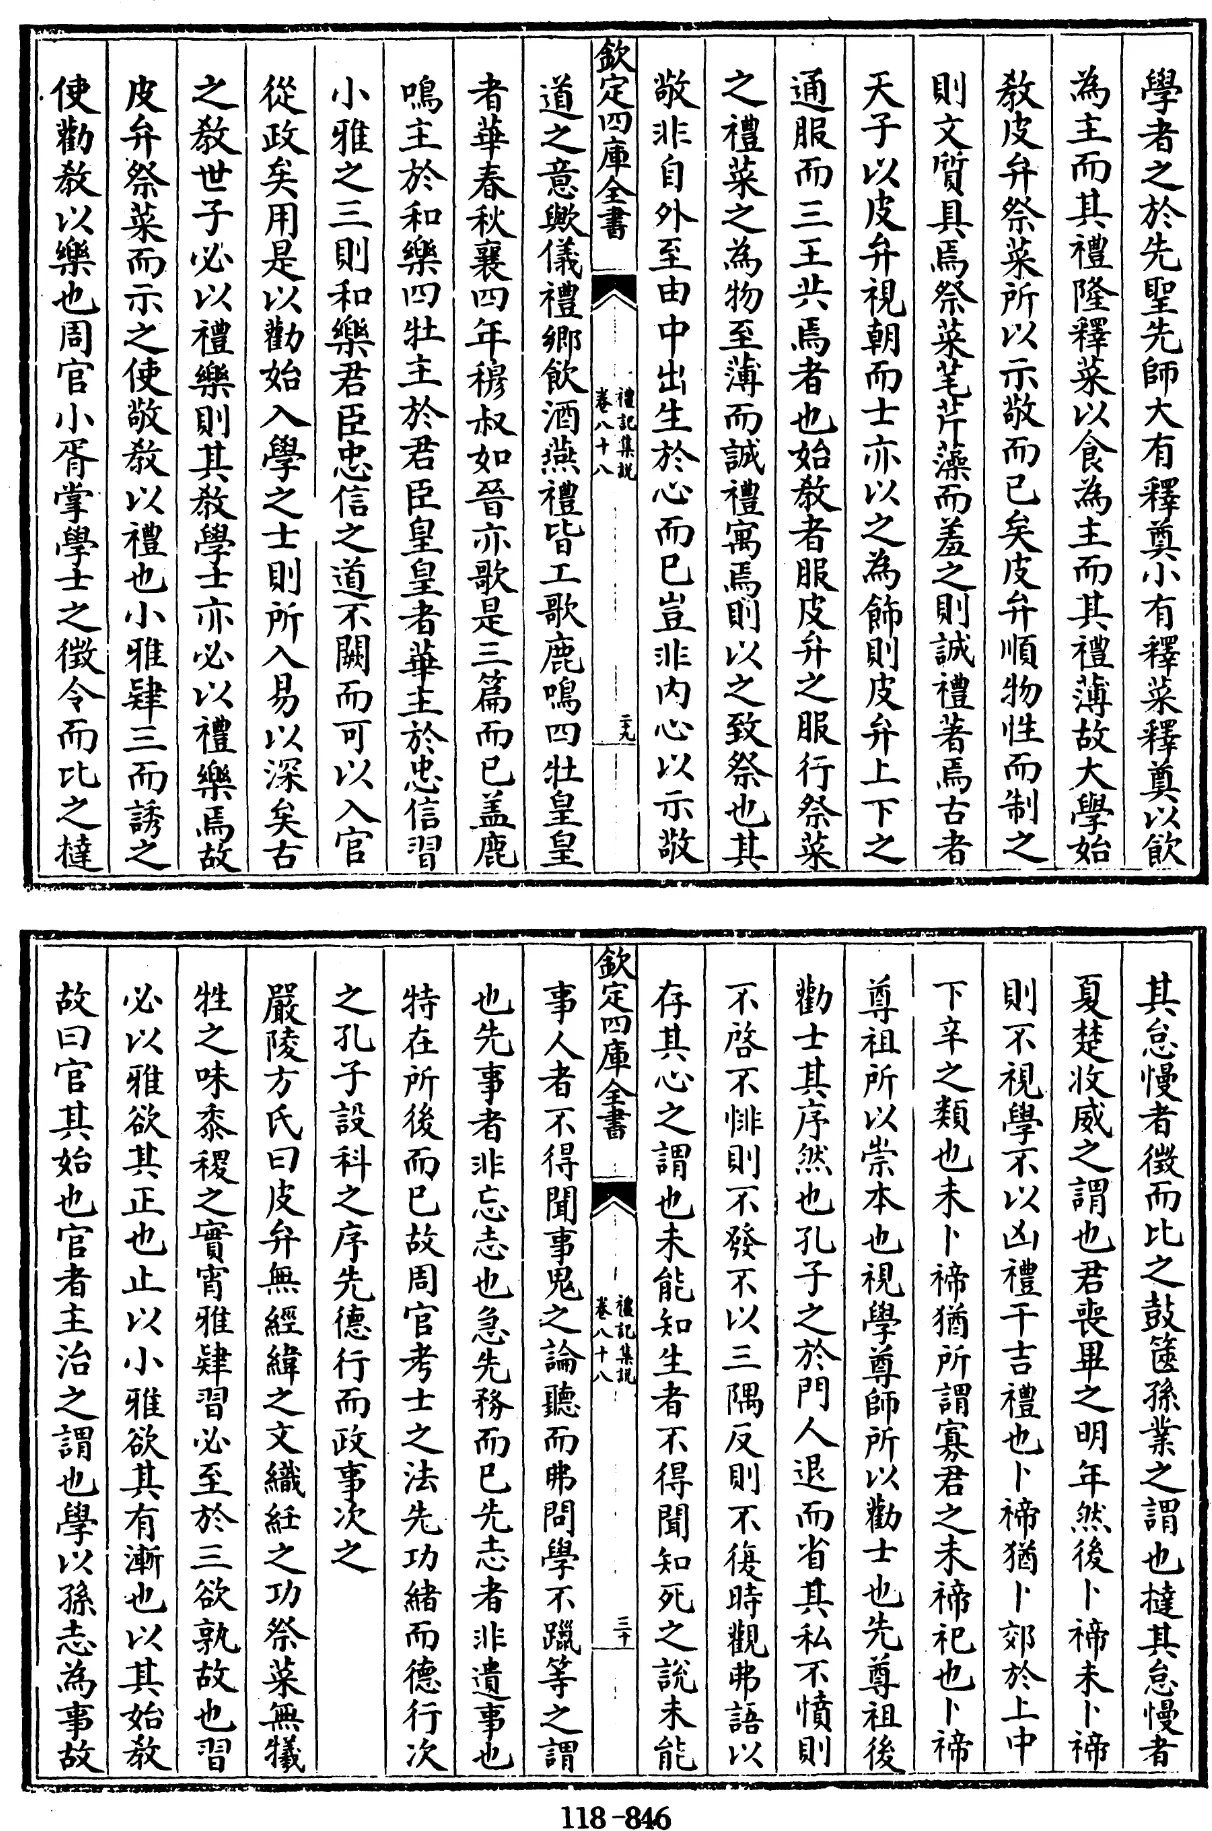 學者之於先聖先師大有釋奠小有釋菜釋奠以飲
為主而其禮隆釋菜以食為主而其禮薄故大學始
教皮弁祭菜所以示敬而已矣皮弁順物性而制之
則文質具焉祭菜芼芹藻而羞之則誠禮著焉古者
天子以皮弁視朝而士亦以之為飾則皮弁上下之
通服而三王共焉者也始教者服皮弁之服行祭菜
之禮菜之為物至薄而誠禮寓焉則以之致祭也其
敬非自外至由中出生於心而已豈非内心以示敬
欽定四庫全書
禮記集說
卷八十八
二十九
道之意歟儀禮鄉飲酒燕禮皆工歌鹿鳴四牡皇皇
者華春秋襄四年穆叔如晉亦歌是三篇而已盖鹿
鳴主於和樂四牡主於君臣皇皇者華主於忠信習
小雅之三則和樂君臣忠信之道不闕而可以入官
從政矣用是以勸始入學之士則所入易以深矣古
之教世子必以禮樂則其教學士亦必以禮樂焉故
皮弁祭菜而示之使敬教以禮也小雅肄三而誘之
使勸教以樂也周官小胥掌學士之徵令而比之撻
其怠慢者徵而比之鼓篋孫業之謂也撻其怠慢者
夏楚收威之謂也君喪畢之明年然後卜禘未卜禘
則不視學不以凶禮干吉禮也卜禘猶卜郊於上中
下辛之類也未卜禘猶所謂寡君之未禘祀也卜禘
尊祖所以崇本也視學尊師所以勸士也先尊祖後
勸士其序然也孔子之於門人退而省其私不憤則
不啓不悱則不發不以三隅反則不復時觀弗語以
存其心之謂也未能知生者不得聞知死之說未能
欽定四庫全書
禮記集說
卷八十八
三十
事人者不得聞事鬼之論聽而弗問學不躐等之謂
也先事者非忘志也急先務而已先志者非遺事也
特在所後而已故周官考士之法先功緒而德行次
之孔子設科之序先德行而政事次之
嚴陵方氏曰皮弁無經緯之文織紝之功祭菜無犧
牲之味黍稷之實宵雅肄習必至於三欲孰故也習
必以雅欲其正也止以小雅欲其有漸也以其始教
故曰官其始也官者主治之謂也學以孫志為事故
118-846